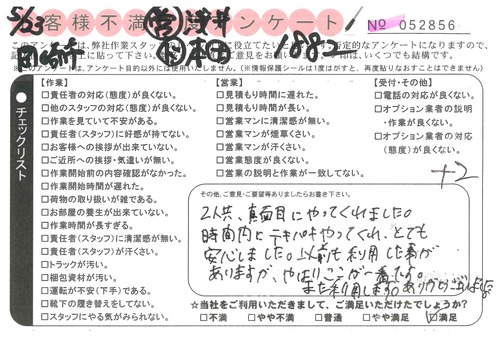 5/23
営 浅井
客様不満 アンケート
No 052856
本田 1882
【作業】
□責任者の対応(態度)が良くない。
□他のスタッフの対応(態度)が良くない。
□作業を見ていて不安がある。
□責任者(スタッフ)に好感が持てない。
□お客様への挨拶が出来ていない。
□ご近所への挨拶・気遣いが無い。
□作業開始前の内容確認がなかった。
□作業開始時間が遅れた。
□荷物の取り扱いが雑である。
□お部屋の養生が出来ていない。
□作業時間が長すぎる。
□責任者(スタッフ)に清潔感が無い。
□責任者(スタッフ)が汗くさい。
□トラックが汚い。
□梱包資材が汚い。
□運転が不安(下手)である。
□靴下の履き替えをしてない。
□スタッフにやる気がみられない。
チェックリスト
【営業】
□見積もり時間に遅れた。
□見積もり時間が長い。
□営業マンに清潔感が無い。
□営業マンが煙草くさい。
□営業マンが汗くさい。
□営業態度が良くない。
□営業の説明と作業が一致してない。
【受付・その他】
□電話の対応が良くない。
□オプション業者の説明
・作業が良くない。
□オプション業者の対応
(態度)が良くない。
+2
その他、ご意見・ご要望等ありましたらお書き下さい。
2人共、真面目にやってくれました。
時間内にテキパキやってくれ、とても
安心しました。以前も利用した事が
ありますが、やはりここが一番だよ。
また利用します。ありがとうございました
☆当社をご利用いただきまして、ご満足いただけたでしょうか?
□不満 □やや不満 □普通 □やや満足 ☑満足